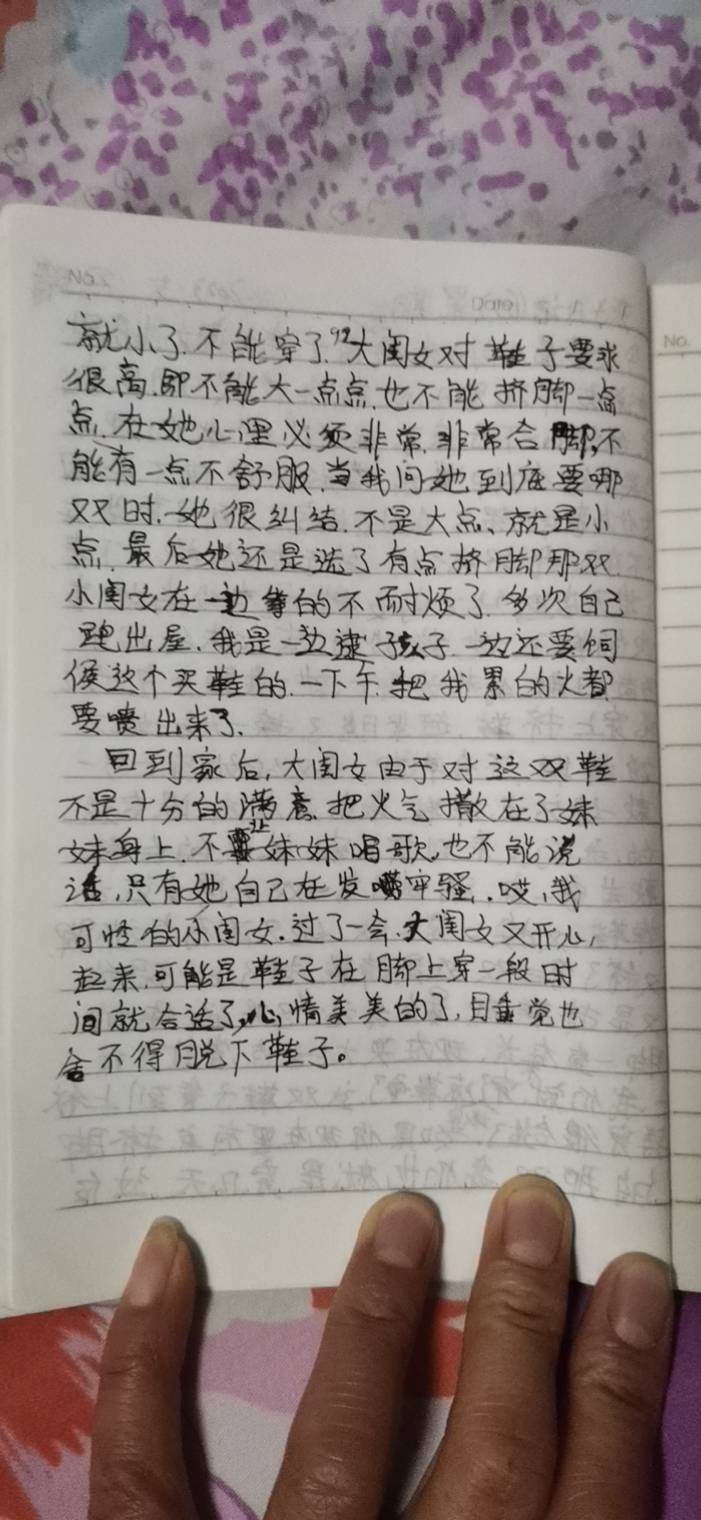 No.
就小了.不能穿了.大闺女对鞋子要求
很高.即不能大一点点.也不能挤脚一点
点.在她心里必须非常.非常合脚,不
能有一点不舒服.当我问她到底要哪
双时.她很纠结.不是大点、就是小
点.最后她还是选了有点挤脚那双.
小闺女在一边等的不耐烦了.多次自己
跑出屋.我是一边逮孩子.一边还要伺
侯这个买鞋的.一下午.把我累的火都
要喷出来了.
回到家后,大闺女由于对这双鞋
不是十分的满意.把火气撒在了妹
妹身上.不让妹妹唱歌,也不能说
话,只有她自己在发牢骚.哎,我
可怜的小闺女.过了一会.大闺女又开心,
起来.可能是鞋子在脚上穿一段时
间就合适了,心情美美的了,睡觉也
舍不得脱下鞋子。
No.